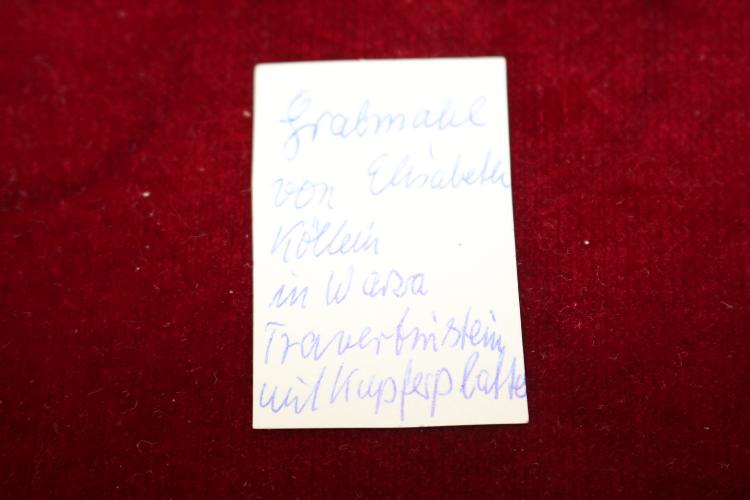 Grabmahl
von Elisabeth
Köllein
in Warza
Travertinstein
mit Kupferplatte